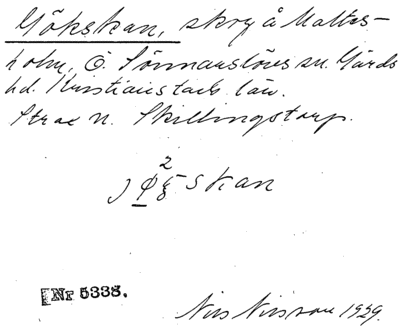 Gökskan, skog å Maltes-
holm, Ö. Sönnarslövs sn. Gärds
hd. Kristianstads län.
Strax n. Skillingstorp.
2
skan
[Nr 5338.
Nils Nilsson 1929.